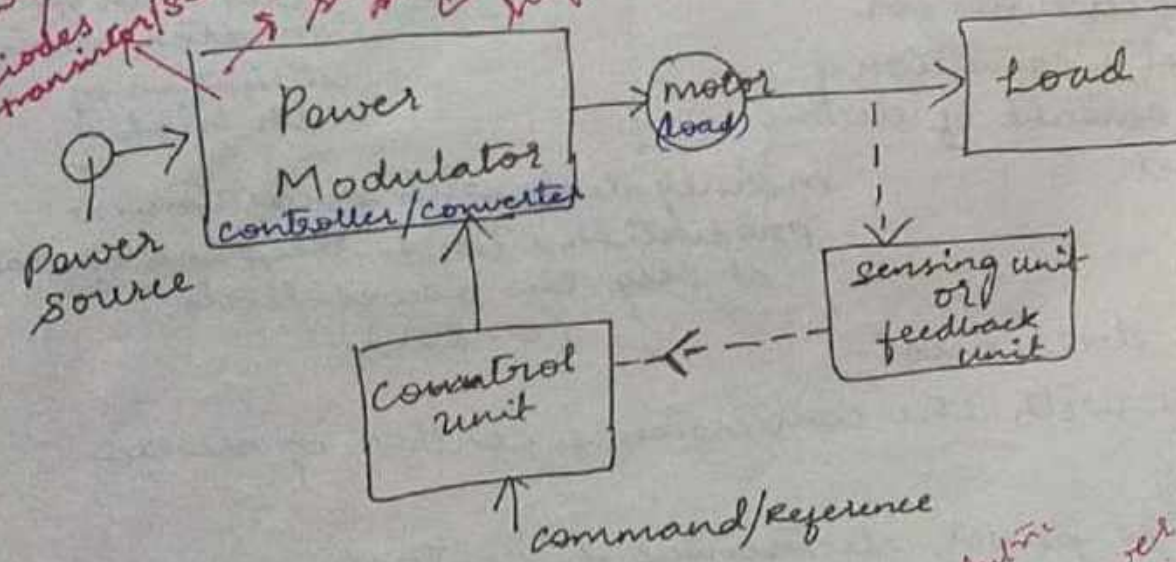 diodes
transistor/
Power
Modulator
controller/converter
motor
(load)
Load
Power
source
sensing unit
or
feedback
unit
Conntrol
unit
command/Reference